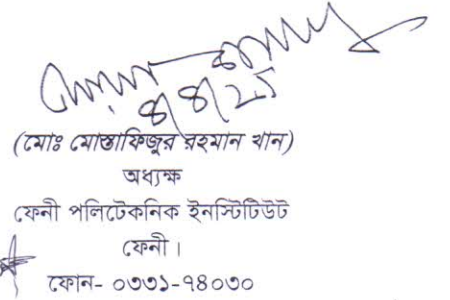 ৪/৪/২৫
(মোঃ মোস্তাফিজুর রহমান খান)
অধ্যক্ষ
ফেনী পলিটেকনিক ইনস্টিটিউট
ফেনী।
ফোন- ০৩৩১-৭৪০৩০